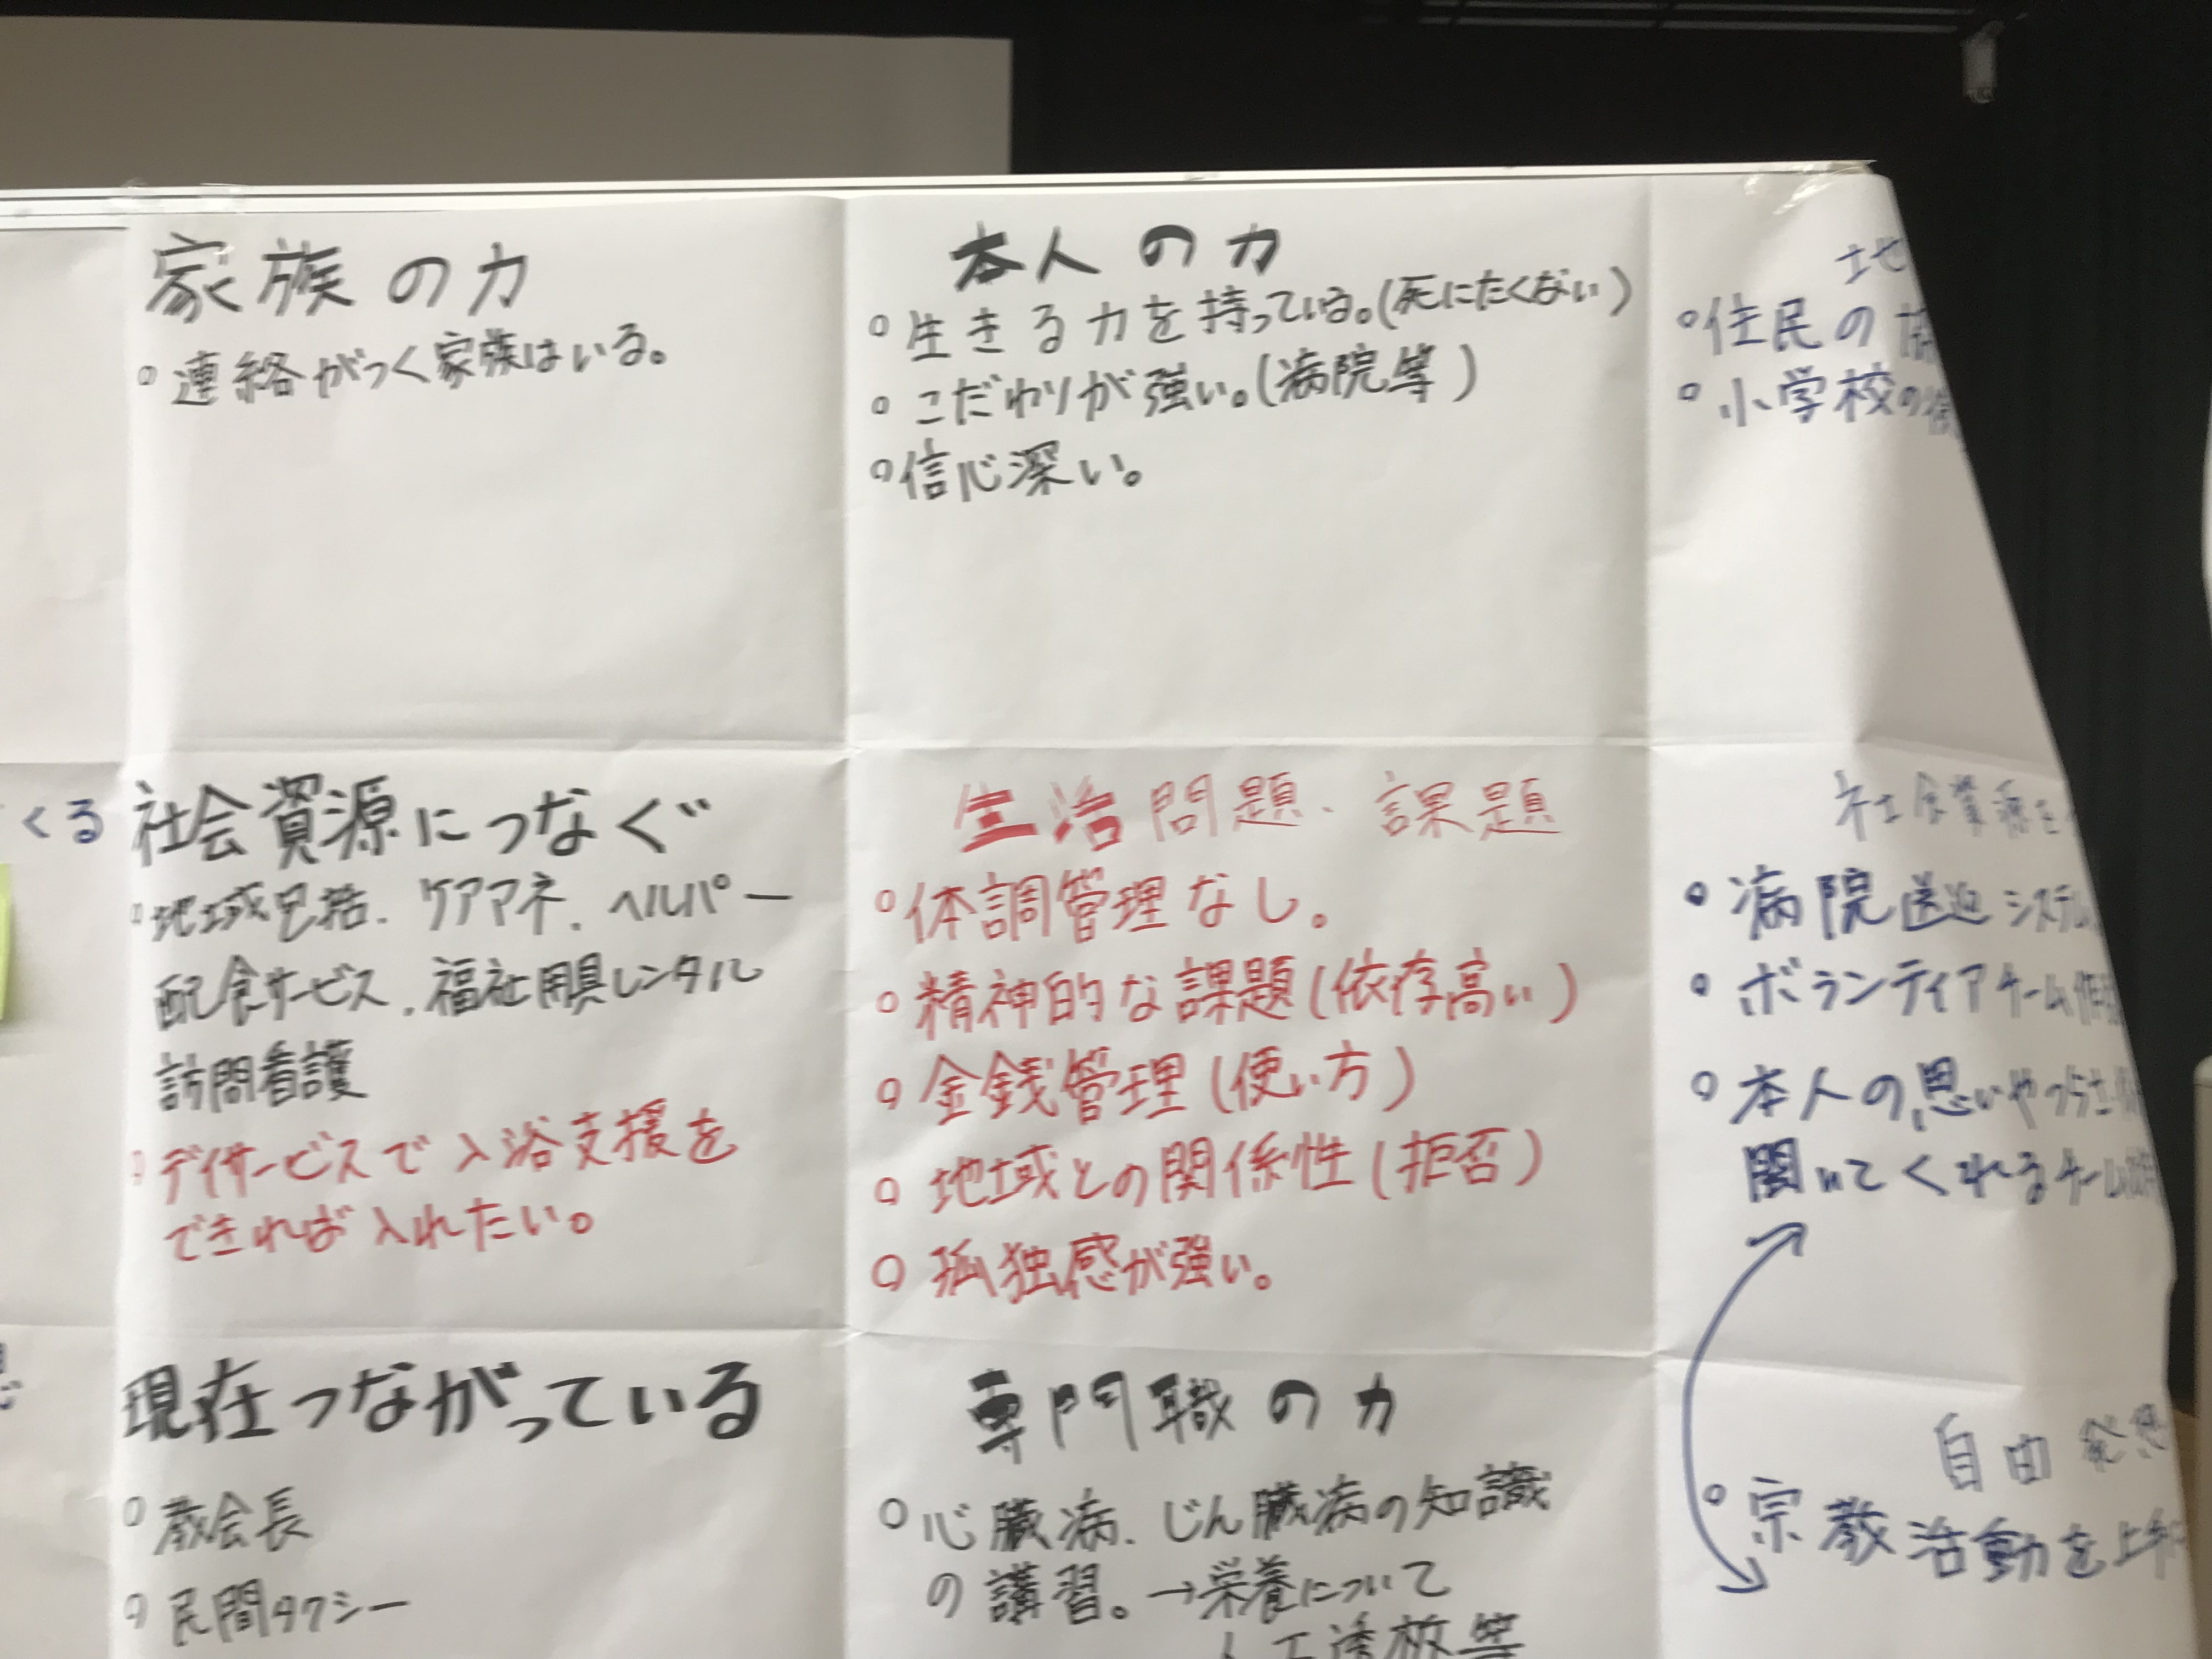 家族の力
○連絡がつく家族はいる。
本人の力
○生きる力を持っている。(死にたくない)
○こだわりが強い。(病院等)
○信心深い。
地
○住民の
○小学校の
くる
社会資源につなぐ
○地域包括、ケアマネ、ヘルパー
配食サービス、福祉用具レンタル
訪問看護
○デイサービスで入浴支援を
できれば入れたい。
生活問題、課題
○体調管理なし。
○精神的な課題(依存高い)
○金銭管理(使い方)
○地域との関係性(拒否)
○孤独感が強い。
社会資源を
○病院送迎システム
○ボランティアチーム
○本人の思いや
聞いてくれるチーム
現在つながっている
○教会長
○民間タクシー
専門職の力
○心臓病、じん臓病の知識
の講習。→栄養について
人工透析等
自由発想
○宗教活動を